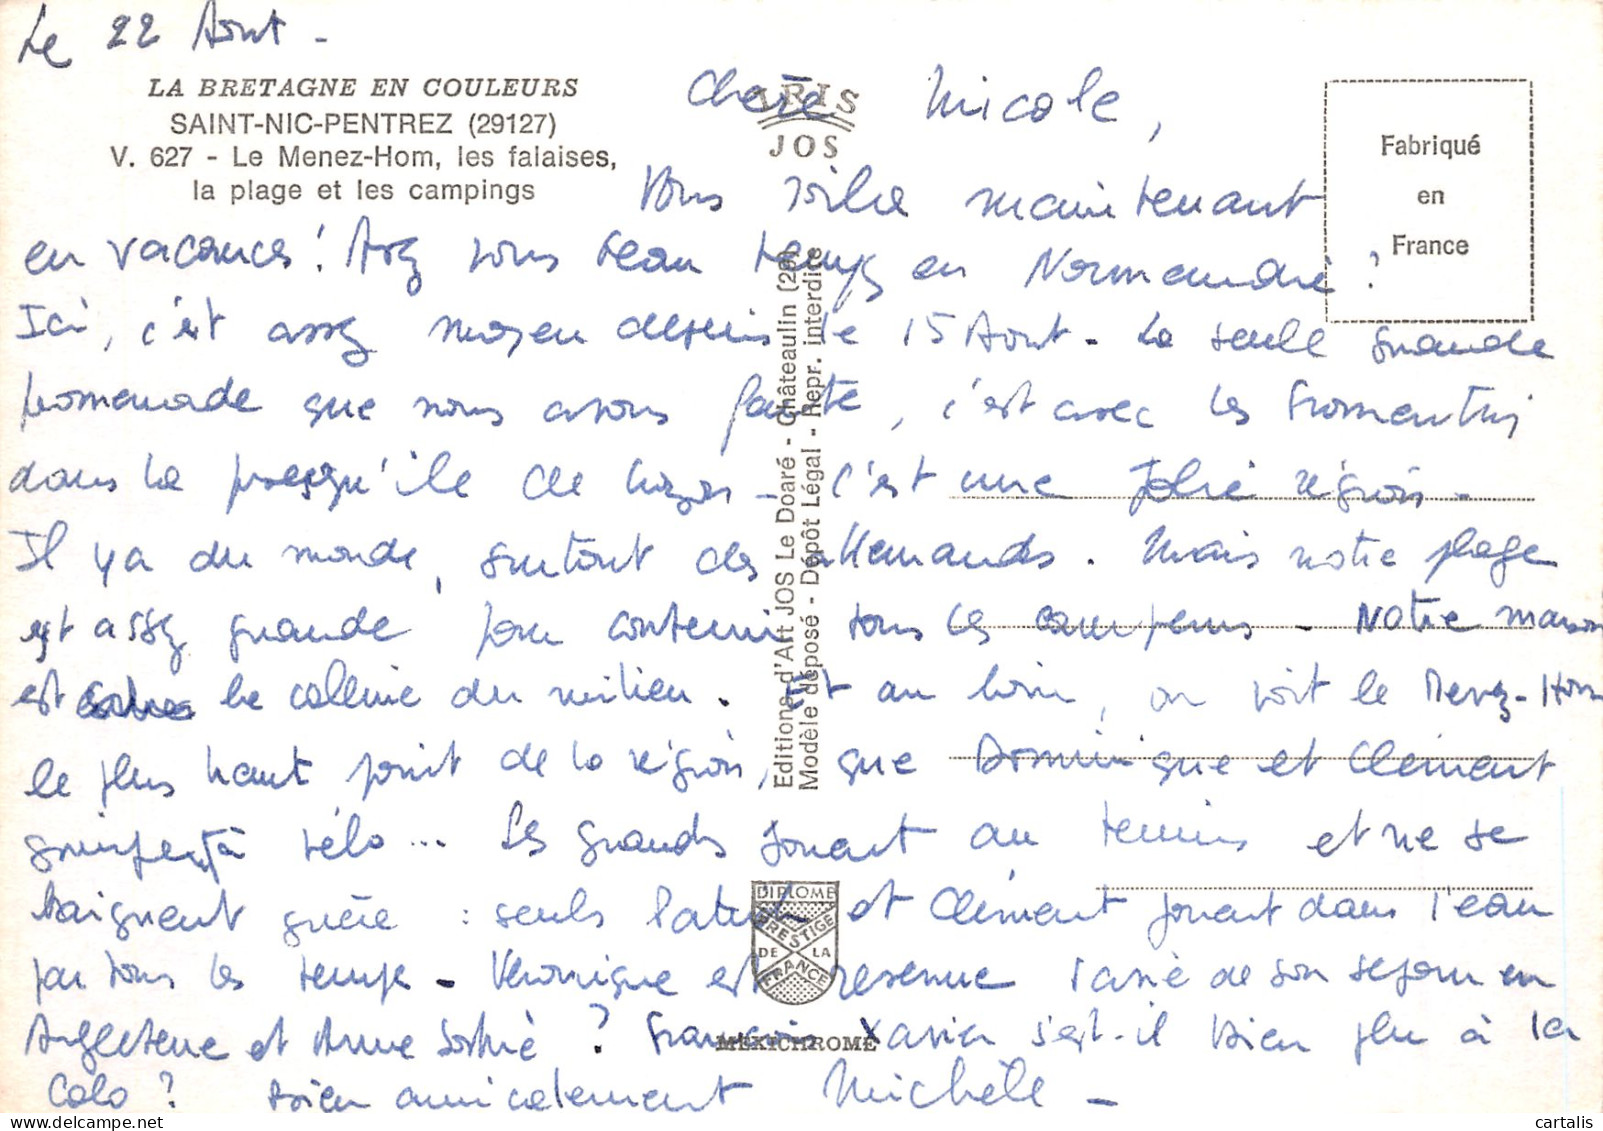 Le 22 Août -
LA BRETAGNE EN COULEURS
SAINT-NIC-PENTREZ (29127)
V. 627 - Le Menez-Hom, les falaises,
la plage et les campings
IRIS
JOS
Fabriqué
en
France
Chère Nicole,
Vous voilà maintenant
en vacances ! Avez vous beau temps en Normandie ?
Ici, c'est assez moyen depuis le 15 Août - La seule grande
promenade que nous avons faite, c'est avec les Fromentin
dans la presqu'île de Crozon - C'est une jolie région -
Il y a du monde, surtout des allemands. Mais notre plage
est assez grande pour contenir tous les campeurs - Notre maison
est la colline du milieu. Et au loin, on voit le Menez-Hom
le plus haut point de la région, que Dominique et Clément
grimpent à vélo... Les grands jouent au tennis et ne se
baignent guère : seuls Patrick et Clément jouent dans l'eau
par tous les temps - Véronique est revenue ravie de son séjour en
Angleterre et Anne Sophie ? François Xavier s'est-il bien plu à la
colo ? Bien amicalement Michèle -
Editions d'Art JOS Le Doaré - Châteaulin (29)
Modèle déposé - Dépôt Légal - Repr. interdite
DIPLOME
PRESTIGE
DE LA
FRANCE
MEXICHROME
cartalis